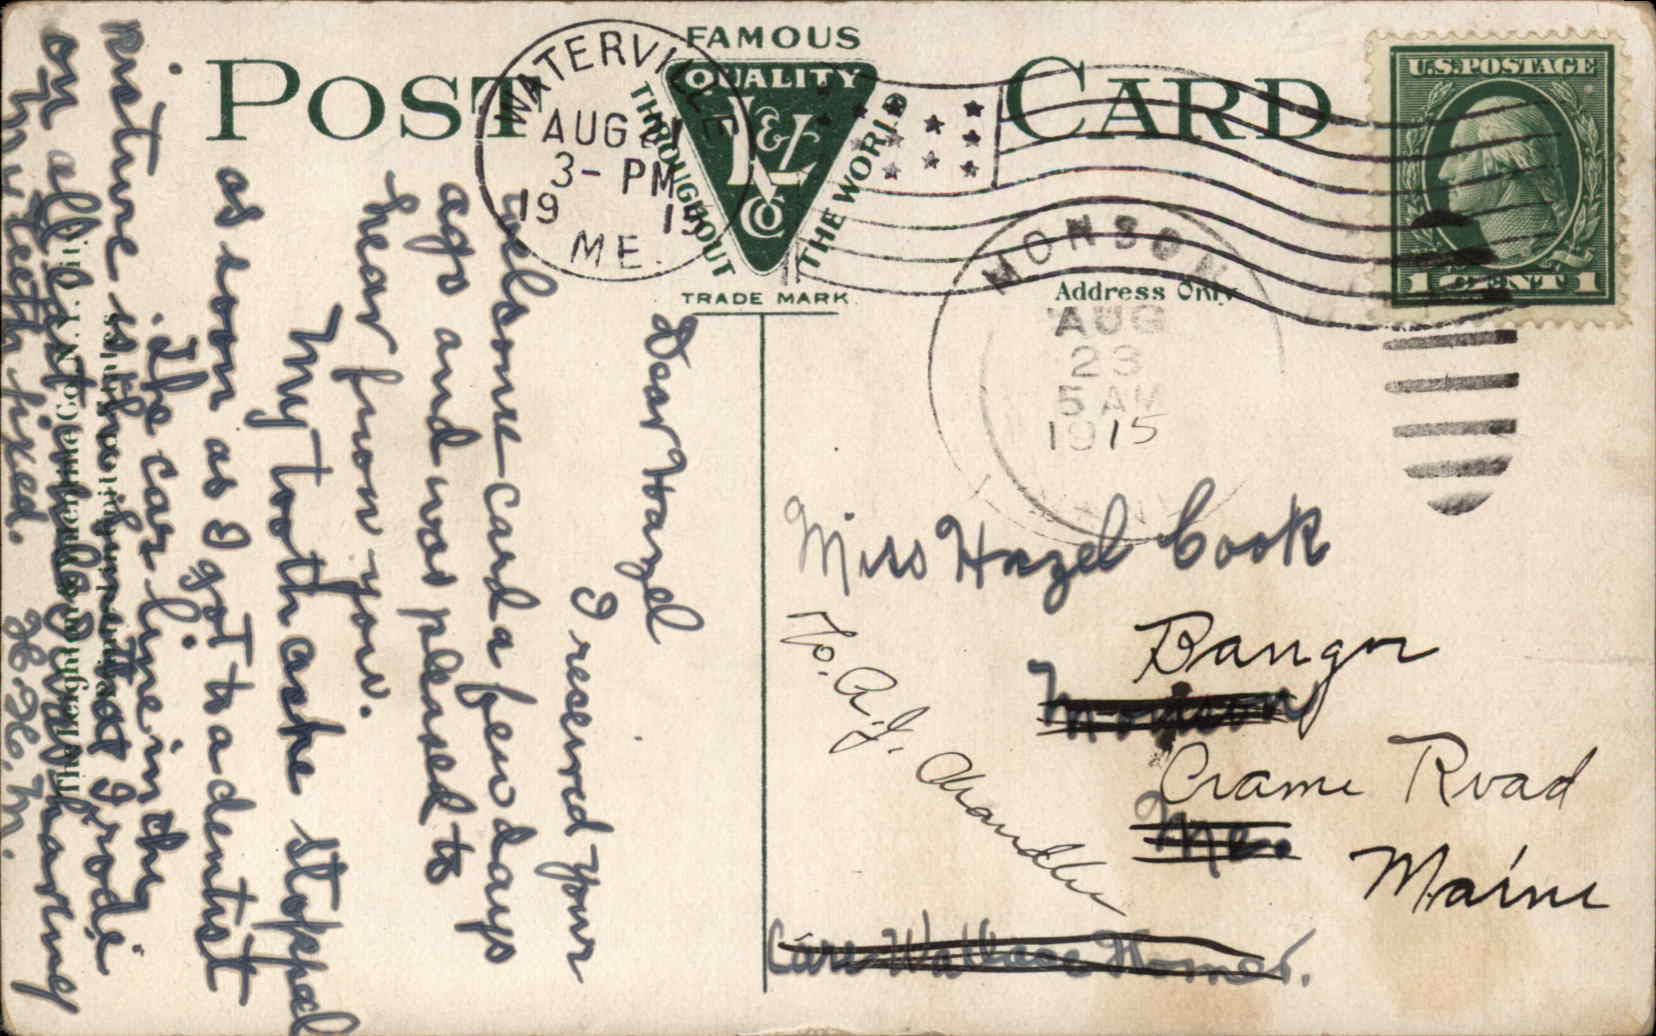 POST CARD
FAMOUS
QUALITY
THROUGHOUT
THE WORLD
L
&L
Co
TRADE MARK
WATERVILLE
AUG 21
3- PM
19 15
ME.
MONSON
AUG
23
5 AM
1915
Address Only
U.S. POSTAGE
1 CENT 1
Dear Hazel
I received your
welcome card a few days
ago and was pleased to
hear from you.
My tooth ache stopped
as soon as I got to a dentist
The car line in the
picture is the one that I rode
on all last
having
my teeth fixed. H. H. M.
Miss Hazel Cook
Bangor
Monson
Crame Road
Me.
Maine
To. A. J. Chandler
Care Wallace